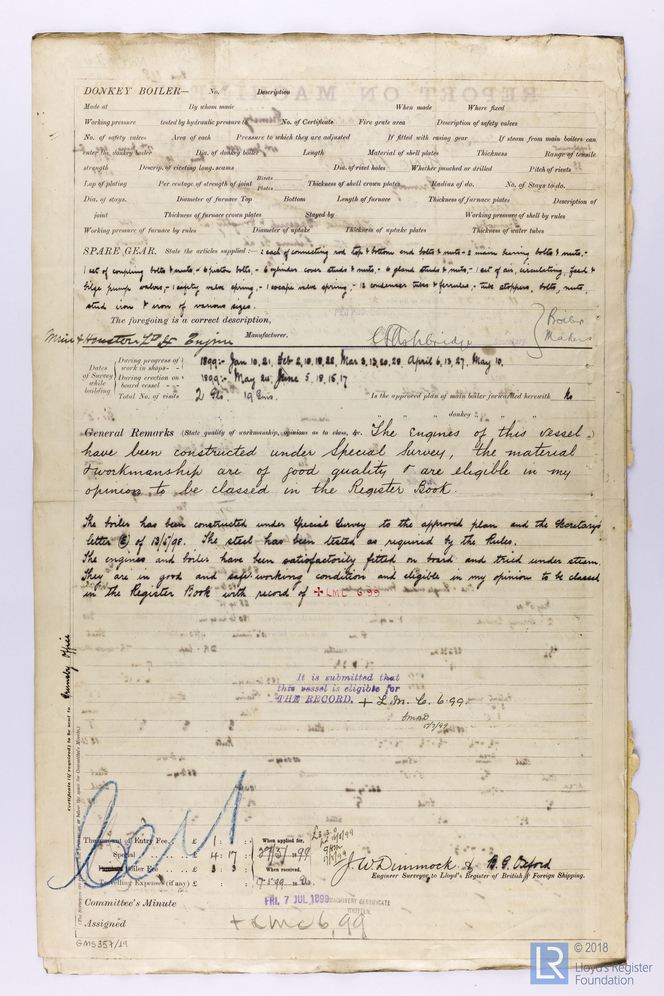 DONKEY BOILER— No. Description
Made at By whom made When made Where fixed
Working pressure tested by hydraulic pressure to No. of Certificate Fire grate area Description of safety valves
No. of safety valves Area of each Pressure to which they are adjusted If fitted with easing gear If steam from main boilers can
enter the donkey boiler Dia. of donkey boiler Length Material of shell plates Thickness Range of tensile
strength Descrip. of riveting long. seams Dia. of rivet holes Whether punched or drilled Pitch of rivets
Lap of plating Per centage of strength of joint Rivets Plates Thickness of shell crown plates Radius of do. No. of Stays to do.
Dia. of stays. Diameter of furnace Top Bottom Length of furnace Thickness of furnace plates Description of
joint Thickness of furnace crown plates Stayed by Working pressure of shell by rules
Working pressure of furnace by rules Diameter of uptake Thickness of uptake plates Thickness of water tubes
SPARE GEAR. State the articles supplied:— 2 each of connecting rod top & bottom end bolts & nuts - 2 main bearing bolts & nuts -
1 set of coupling bolts & nuts - 6 piston bolts - 6 cylinder cover studs & nuts - 6 gland studs & nuts - 1 set of air, circulating, feed &
bilge pump valves - 1 safety valve spring - 1 escape valve spring - 12 condenser tubes & ferrules - tube stoppers, bolts, nuts,
studs, iron & iron of various sizes.
The foregoing is a correct description,
Muir & Houston Ld for Engine Manufacturer. Boiler
Makers
Dates of Survey while building
During progress of work in shops - - 1899:- Jan 10, 21, Feb 2, 10, 18, 22, Mar 3, 13, 20, 28, April 6, 13, 27, May 10.
During erection on board vessel - - 1899:- May 24, June 5, 15, 16, 17
Total No. of visits 19 Is the approved plan of main boiler forwarded herewith No
" " " donkey " " "
General Remarks (State quality of workmanship, opinions as to class, &c. The Engines of this vessel
have been constructed under Special Survey, the material
& workmanship are of good quality & are eligible in my
opinion to be classed in the Register Book.
The boiler has been constructed under Special Survey to the approved plan and the Secretary's
letter (E) of 13/5/98. The steel has been tested as required by the Rules.
The engines and boiler have been satisfactorily fitted on board and tried under steam.
They are in good and safe working condition and eligible in my opinion to be classed
in the Register Book with record of + LMC 6 99
It is submitted that
this vessel is eligible for
THE RECORD. + L.M.C. 6.99.
Certificate (if required) to be sent to Grimsby Office
Cert
The amount of Entry Fee . . £ 1 : : When applied for,
Special . . . . £ 4 : 17 : 27/5/1899
Boiler Fee . . . £ 3 : 3 : When received,
Travelling Expenses (if any) £ : :
J. W. Dimmock & B. G. Oxford
Engineer Surveyor to Lloyd's Register of British & Foreign Shipping.
Committee's Minute FRI. 7 JUL 1899 MACHINERY CERTIFICATE
WRITTEN.
Assigned + LMC 6,99
GMS357/19
LR © 2018
Lloyd's Register
Foundation